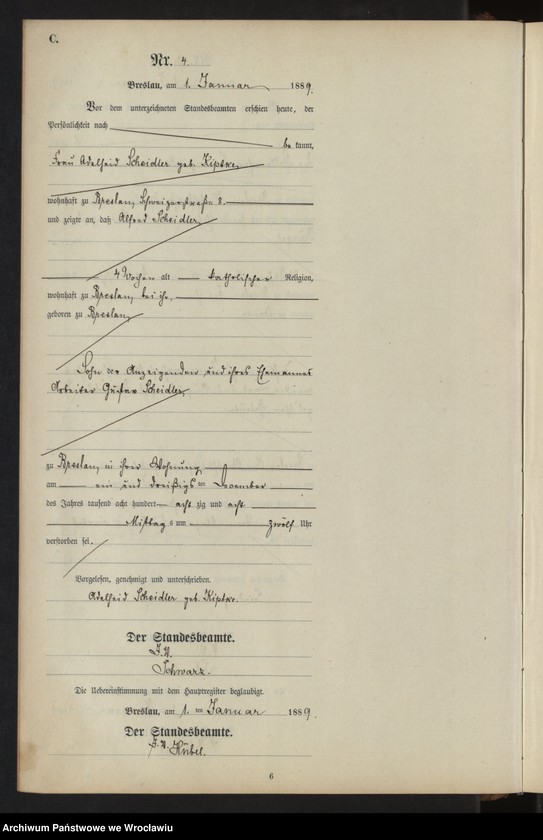 C.
Nr. 4.
Breslau, am 1. Januar 1889.
Vor dem unterzeichneten Standesbeamten erschien heute, der
Persönlichkeit nach
be kannt,
Frau Adelheid Scheidler geb.
wohnhaft zu Breslau, Schweizerstraße 8.
und zeigte an, daß Alfred Scheidler,
4 Wochen alt katholischer Religion,
wohnhaft zu Breslau, bei ihr,
geboren zu Breslau,
Sohn der Anzeigenden und ihres Ehemannes
Arbeiter Gustav Scheidler,
zu Breslau, in ihrer Wohnung
am ein und dreißigsten December
des Jahres tausend acht hundert acht zig und acht
Mittags um zwölf Uhr
verstorben sei.
Vorgelesen, genehmigt und unterschrieben.
Adelheid Scheidler geb.
Der Standesbeamte.
J.V.
Schwarz.
Die Uebereinstimmung mit dem Hauptregister beglaubigt.
Breslau, am 1. ten Januar 1889.
Der Standesbeamte.
J.V. Hübel.
6
Archiwum Państwowe we Wrocławiu